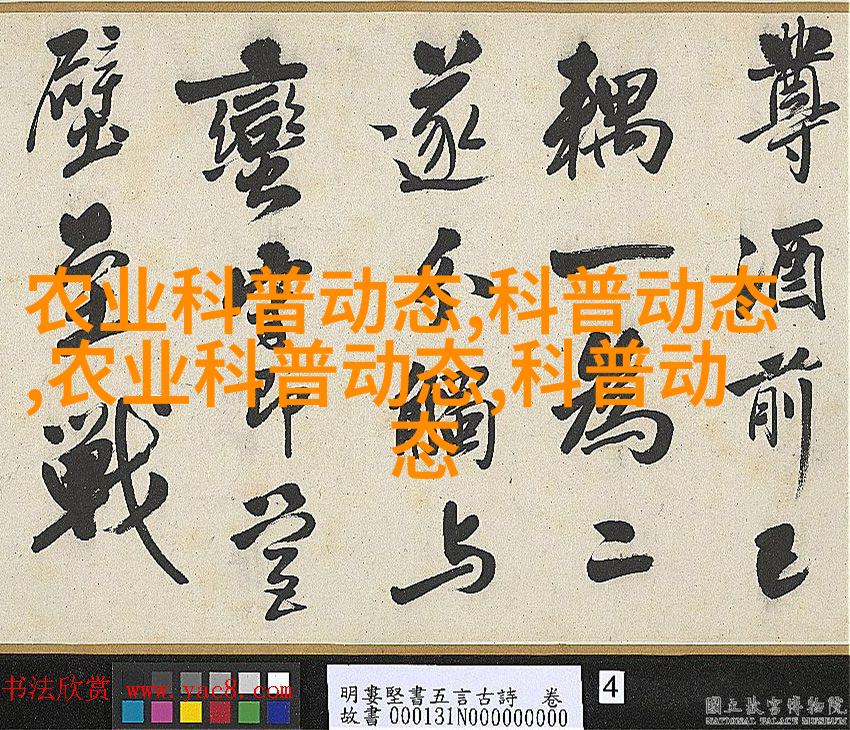 尊酒前已
耦一為二
遂分觸与
蠻即營
壁壘戰
农业科普动态,科普动态
,农业科普动态,科普动
态
书法欣赏 www.yac8.com
明婁堅書五言古詩 卷
故書000131N000000000
4
國立故宮博物院
NATIONAL PALACE MUSEUM